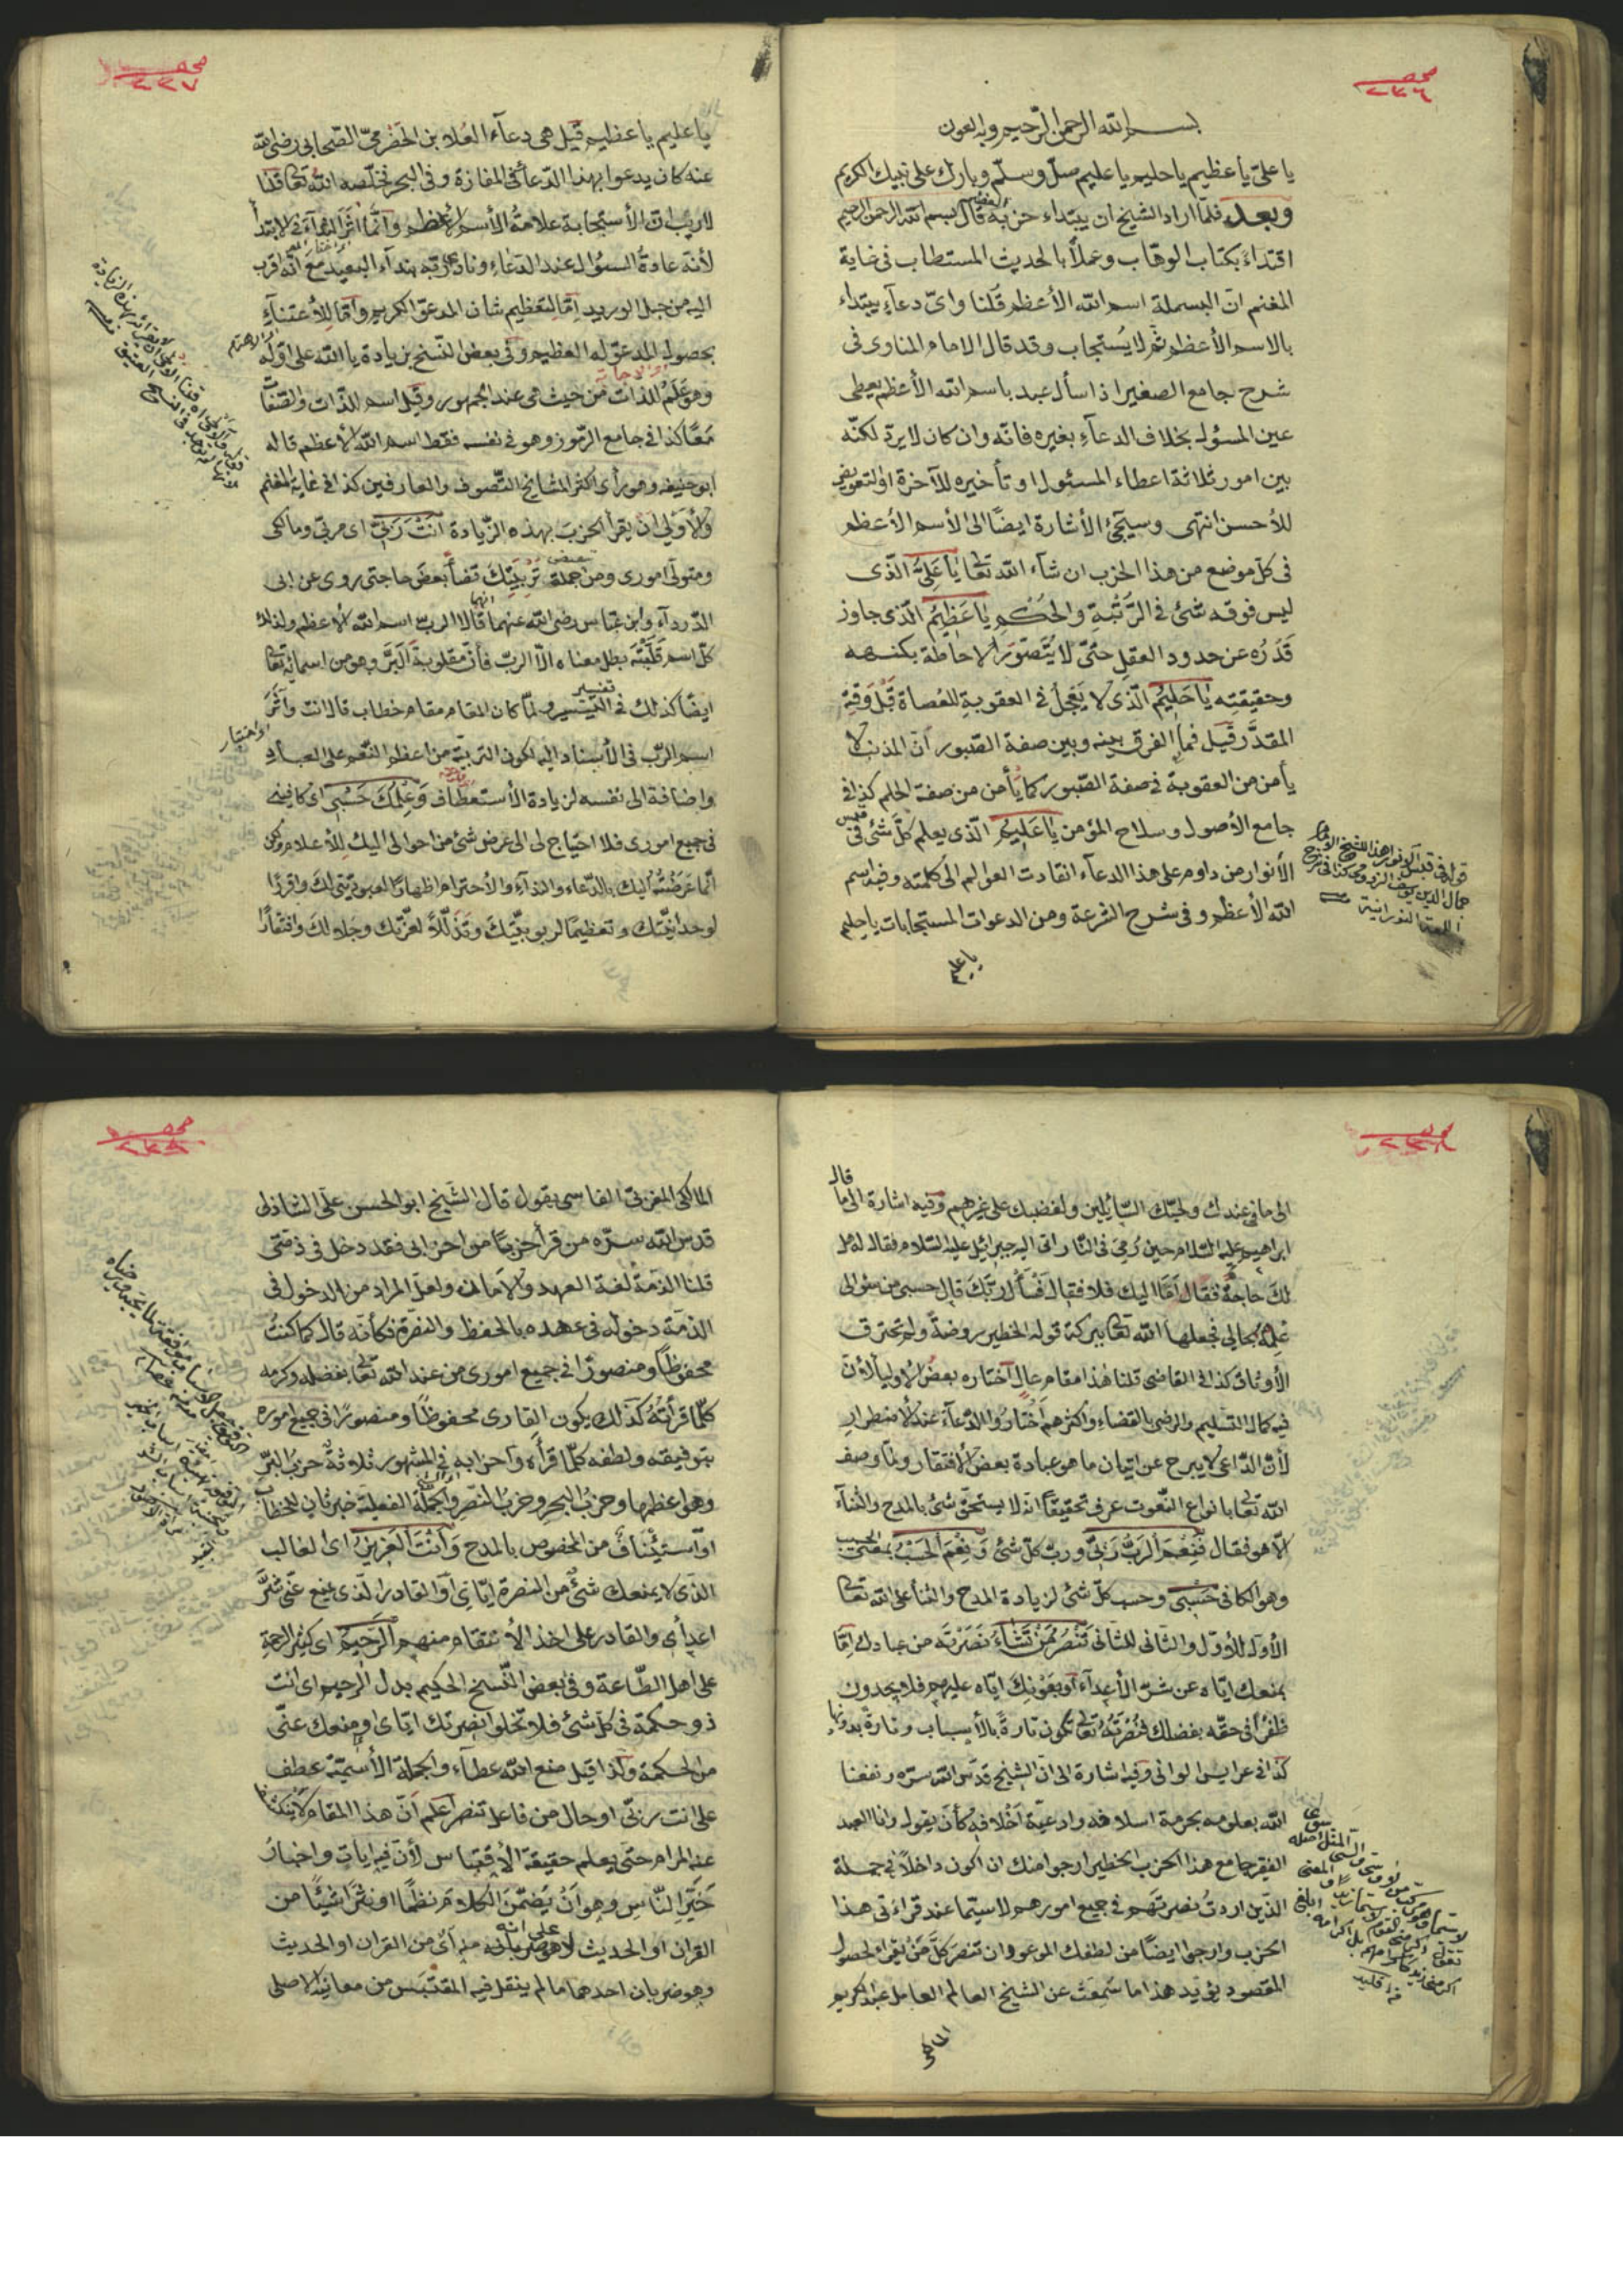 صحف
٢٣٦
بسم الله الرحمن الرحيم وبه العون
يا علىّ يا عظيم يا حليم يا عليم صلّ وسلّم وبارك على نبيك الكريم
وبعد فلمّا اراد الشيخ ان يبتداء حزبه قال بسم الله الرحمن الرحيم
اقتداءً بكتاب الوهّاب وعملاً بالحديث المستطاب فى غاية
المغنم انّ البسملة اسم الله الأعظم قلنا واىّ دعآءٍ يبتداء
بالاسم الأعظم ثم لا يُستجاب وقد قال الامام المناوى فى
شرح جامع الصغير اذا سأل عبد باسم الله الأعظم يعطى
عين المسؤل بخلاف الدعآءِ بغيره فانّه وان كان لا يردّ لكنّه
بين امور ثلاثة اعطاء المسئول او تأخيره للآخرة او التعويض
للأحسن انتهى وسيجئ الأشارة ايضًا الى الأسم الأعظم
فى كلّ موضع من هذا الحزب ان شآء الله تعا يَا عَلِىُّ الّذى
ليس فوقه شئ فى الرّتْبةِ والحُكْمِ يَا عَظِيمُ الّذى جاوز
قَدْرُه عن حدود العقلِ حتىّ لا يُتَصَوّر الاحاطة بكنهه
وحقيقتِه يَا حَلِيمُ الّذى لا يَعْجلُ فى العقوبةِ للعُصاة قَبْلَ وَقتِه
المقدَّر قيل فما الفرق بينه وبين صفة الصّبور انّ المذنب لا
يأمن من العقوبة فى صفة الصّبور كما يأمن من صفة الحلم كذا فى
جامع الأصول وسلاح المؤمن يَا عَلِيمُ الّذى يعلم كلّ شئ فى
الأنوار من داوم على هذا الدعآء انقادت العوالم الى كلمته وفيه اسم
الله الأعظم وفى شرح الشرعة ومن الدعوات المستجابات يا حليم
يا عليم
صحف
٢٣٧
يا عليم يا عظيم قيل هى دعآء العلاء بن الحَضْرمىّ الصّحابى رضى الله
عنه كان يدعوا بهذا الدّعآ فى المفازة وفى البحر فخلّصه الله تعا قلنا
لا ريب انّ الأستجابة علامةُ الأسم الأعظم وانّما اثَرَ النداءَ فى الابتدا
لأنه عادةُ السؤال عند الدّعآءِ ونادى ربّه بندآء البعيد مع انّه اقرب
اليه من حبل الوريد امّا لتعظيم شان المدعوّ الكريم وامّا للأعتنآءِ
بحصول المدعوّ له العظيم وفى بعض النّسخ بزيادة يا الله على اوّله
وهو عَلَمٌ للذات من حيث هى عند الجمهور وقيل اسم للذّات والصّفات
مَعًا كذا فى جامع الرّموز وهو فى نفسه فقط اسم الله الأعظم قاله
ابو حنيفه وهو رأى اكثر المشايخ التّصوف والعارفين كذا فى غاية المغنم
والأولى انْ يقرأ الحزبَ بهذه الزّيادة اَنْتَ رَبّى اى مربّى ومالكى
ومتولّى امورى ومن جملة تَرْبِيَتِكَ قضأ بعضَ حاجتى روى عن ابى
الدّردآء وابن عبّاس رضى الله عنهما قالا الربّ اسم الله الأعظم ولذلك
كلّ اسم قَلَّبْتَه بطل معناه الّا الربّ فأنّ مقلوبه البَرّ وهو من اسمائه تعا
ايضًا كذلك فى التيسير ولمّا كان المقام مقام خطاب قال انت واثَرَ
اسم الربّ فى الأسناد اليه لكون التربيّة من اعظم النّعم على العبادِ
واضافة الى نفسه لزيادة الأستعطاف وَعِلْمُكَ حَسْبِى اى كافينى
فى جميع امورى فلا احتياج لى الى عرض شئ من احوالى اليك للأعلام ولكن
انّما عَرَضْتُ اليك بالدّعاء والندآءِ والأحترام اظهارًا لعبوديّتى لك واقرارًا
لوحدانيّتك وتعظيمًا لربوبيّتك وتذلّلاً لعزّتك وجلالك وافتقارًا
صحف
٢٣٨
الى ما فى عندك ولحبّك السّائلين ولغضبك على غيرهم وفيه اشارة الى ما قال
ابراهيم عليه السّلام حين رُمِىَ فى النّار اتى اليه جبرائيل عليه السّلام فقال له هل
لك حاجةٌ فقال امّا اليك فلا فقال فَسْأل ربّكَ قال حسبى من سؤالى
عِلْمُهُ بحالى فجعلها الله تعا ببركة قوله الخطير روضةً ولم تحترق
الأوثاق كذا فى القاضى قلنا هذا مقام عالٍ اختاره بعضُ الأوليآء لأنّ
فيه كمال التسليم والرضى بالقضاءِ واكثرهم اختارُوا الدّعآء عند الأضطرارِ
لأنّ الدّاعى لا يبرح عن اتيان ما هو عبادة بعض الأفتقار ولمّا وصف
الله تعا بانواع النّعوت عرف تحقيقًا انّه لا يستحقّ شئ بالمدح والثنآءِ
الّا هو فقال فَنِعْمَ الرَبُّ رَبّى وربّ كلّ شئ وَنِعْمَ الحَسْبُ بمعنى المحسب
وهو الكافى حَسْبِى وحسب كلّ شئ لزيادة المدح والثنآ على الله تعا
الأوّل للأوّل والثّانى للثّانى تَنْصُرُ مَنْ تَشَاءُ نَصَرْتَه من عبادك امّا
بمنعك ايّاه عن شرّ الأعدآءِ او بعَوْنِكَ ايّاه عليهم فلا يجدون
ظَفَرًا فى حقّه بفضلك فنُصْرَتُهُ تعا تكون تارةً بالأسباب وتارةً بدونها
كذا فى عرايس الوانى وفيه اشارة الى انّ الشيخ قدّس الله سرّه ونفعنا
الله بعلومه بحرمة اسلافه وادعيّة اخْلافِهْ كأنّ يقول وانا العبد
الفقير جامع هذا الحزب الخطير ارجوا منك ان اكون داخلاً فى جملة
الّذين اردتُ نصرتَهم فى جميع امورهم لاسيّما عند قراءتى هذا
الحزب وارجوا ايضًا من لطفك الموعود ان تنصرَ كلَّ مَنْ يَقرأ لحصول
المقصود يؤيّد هذا ما سَمِعَتْ عن الشيخ العالم العامل عبد الكريم
المالكى
صحف
٢٣٩
المالكى المغربىّ الفاسى يقول قال الشّيخ ابو الحسن علىّ الشاذلى
قدس الله سرّه من قرأ حزبًا من احزابى فقد دخل فى ذمّتى
قلنا الذمّةُ لغة العهد والأمانُ ولعلّ المراد من الدخول فى
الذمّة دخوله فى عهده بالحفظ والنصرة فكأنّه قال كما كنتُ
محفوظًا ومنصورًا فى جميع امورى من عند الله تعا بفضله وكرمه
كلّما قرأتُهُ كذلك يكون القارى محفوظًا ومنصورًا فى جميع اموره
بتوفيقه ولطفه كلّما قرأه واحزابه فى المشهور ثلاثةٌ حزبُ البَرِّ
وهو اعظمها وحزبُ البحر وحزب النصرِ والجملة الفعليّة خبر ثانٍ للخطاب
او استئنافٌ من المخصوص بالمدح وَاَنْتَ العَزِيزُ اى الغالب
الّذى لا يمنعك شئٌ من النصرة ايّاىَ او القادر الّذى يمنع عنّى شرَّ
اعدآئى والقادر على اخذ الأنتقام منهم الرَّحِيمُ اى كثير الرحمةِ
على اهل الطّاعة وفى بعض النّسخ الحكيم بدل الرحيم اى انت
ذو حكمة فى كلّ شئ فلا تخلوا نصرتك ايّاى او منعك عنّى
من الحكمة ولذا قيل منع الله عطآء والجملة الأسميّة عطف
على انت ربّى او حال من فاعل تنصر اعلم انّ هذا المقام لا ينكشف
عنه المرام حتى يعلم حقيقة الأقتباس لأنّ فيه اياتٍ واخبارُ
خَيْرِ النّاسِ وهو اَنْ يَضمّنَ الكلامَ نظمًا او نثرًا شيئًا من
القران او الحديث لا على انه منه اىْ من القران او الحديث
وهو ضربان احدهما ما لم ينقل فيه المقتبَس من معانيْه الاصلى